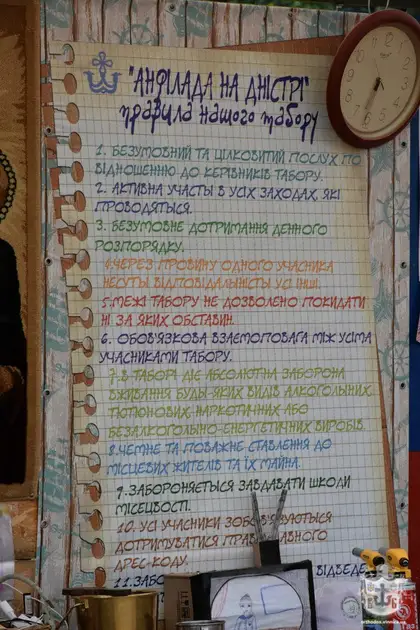 "АНФІЛАДА НА ДНІСТРІ"
правила нашого табору
1. БЕЗУМОВНИЙ ТА ЦІЛКОВИТИЙ ПОСЛУХ ПО
ВІДНОШЕННЮ ДО КЕРІВНИКІВ ТАБОРУ.
2. АКТИВНА УЧАСТЬ В УСІХ ЗАХОДАХ, ЯКІ
ПРОВОДЯТЬСЯ.
3. БЕЗУМОВНЕ ДОТРИМАННЯ ДЕННОГО
РОЗПОРЯДКУ.
4.ЧЕРЕЗ ПРОВИНУ ОДНОГО УЧАСНИКА
НЕСУТЬ ВІДПОВІДАЛЬНІСТЬ УСІ ІНШІ.
5.МЕЖІ ТАБОРУ НЕ ДОЗВОЛЕНО ПОКИДАТИ
НІ ЗА ЯКИХ ОБСТАВИН.
6. ОБОВ'ЯЗКОВА ВЗАЄМОПОВАГА МІЖ УСІМА
УЧАСНИКАМИ ТАБОРУ.
7.В ТАБОРІ ДІЄ АБСОЛЮТНА ЗАБОРОНА
ВЖИВАННЯ БУДЬ-ЯКИХ ВИДІВ АЛКОГОЛЬНИХ,
ТЮТЮНОВИХ, НАРКОТИЧНИХ АБО
БЕЗАЛКОГОЛЬНО-ЕНЕРГЕТИЧНИХ ВИРОБІВ.
8.ЧЕМНЕ ТА ПОВАЖНЕ СТАВЛЕННЯ ДО
МІСЦЕВИХ ЖИТЕЛІВ ТА ЇХ МАЙНА.
9.ЗАБОРОНЯЄТЬСЯ ЗАВДАВАТИ ШКОДИ
МІСЦЕВОСТІ.
10. УСІ УЧАСНИКИ ЗОБОВ'ЯЗУЮТЬСЯ
ДОТРИМУВАТИСЯ ПРАВ
ДРЕС-КОДУ.
11.ЗАБО